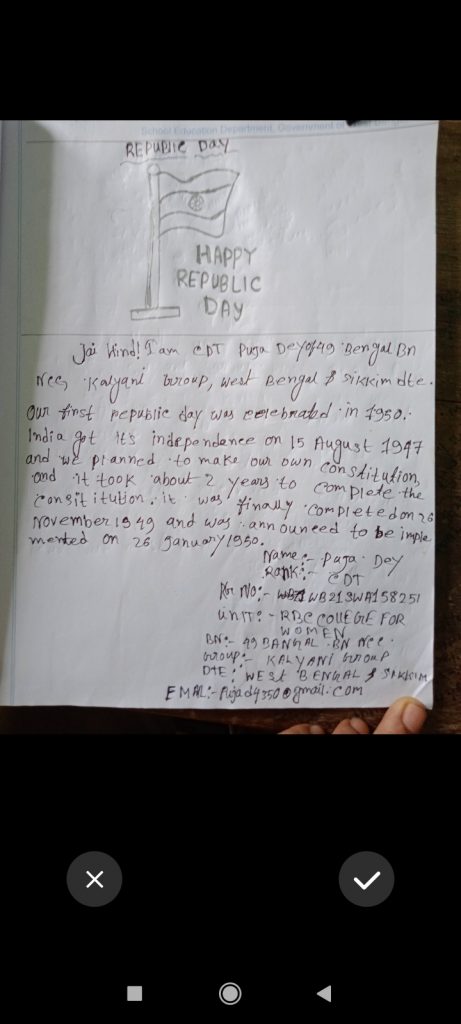 School Education Department, Government of
REPUBLIC DAY
HAPPY
REPUBLIC
DAY
Jai Hind! I am CDT Puja Dey of 49 Bengal Bn
Ncc, Kalyani Group, West Bengal & Sikkim dte.
Our first republic day was celebrated in 1950.
India got its independence on 15 August 1947
and we planned to make our own constitution,
and it took about 2 years to complete the
consititution. it was finally completed on 26
November 1949 and was announced to be imple
mented on 26 January 1950.
Name:- Puja Dey
Rank:- CDT
No:- WB21SWA158251
Unit:- RBC COLLEGE FOR
WOMEN
BN:- 49 BANGAL BN NCC.
Group:- KALYANI GROUP
DTE:- WEST BENGAL & SIKKIM
EMAL:- Pujad4350@gmail.com